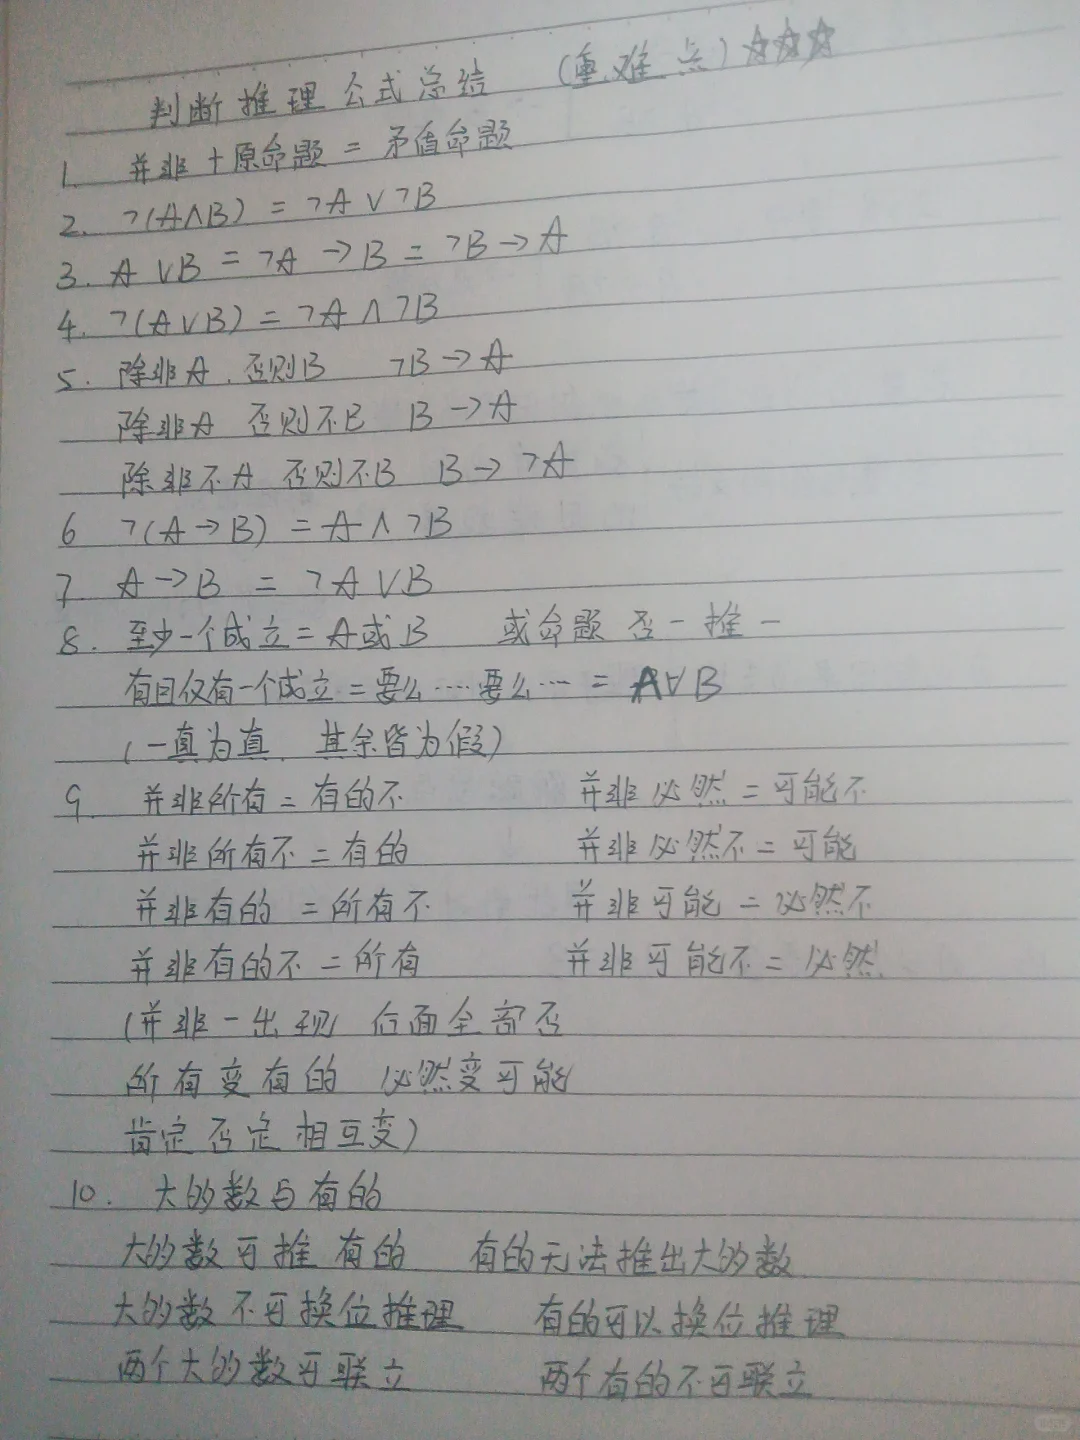 判断推理公式总结 (重、难点)☆☆☆
1. 并非+原命题=矛盾命题
2. ¬(A∧B)=¬A∨¬B
3. A∨B=¬A→B=¬B→A
4. ¬(A∨B)=¬A∧¬B
5. 除非A、否则B ¬B→A
除非A 否则不B B→A
除非不A 否则不B B→¬A
6 ¬(A→B)=A∧¬B
7. A→B=¬A∨B
8. 至少一个成立=A或B 或命题 否一推一
有且仅有一个成立=要么……要么…=A∀B
(一真为真、其余皆为假)
9. 并非所有=有的不 并非必然=可能不
并非所有不=有的 并非必然不=可能
并非有的=所有不 并非可能=必然不
并非有的不=所有 并非可能不=必然
(并非一出现 后面全部否
所有变有的 必然变可能
肯定否定相互变)
10. 大的数与有的
大的数可推有的 有的无法推出大的数
大的数不可换位推理 有的可以换位推理
两个大的数可联立 两个有的不可联立